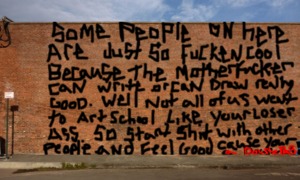 SOME PEOPLE ON HERE
ARE JUST SO FUCKEN COOL
BECAUSE THE MOTHERFUCKER
CAN WRITE OR CAN DRAW REALLY
GOOD. WELL NOT ALL OF US WENT
TO ART SCHOOL LIKE YOUR LOSER
ASS. SO START SHIT WITH OTHER
PEOPLE AND FEEL GOOD CAUSE YOU